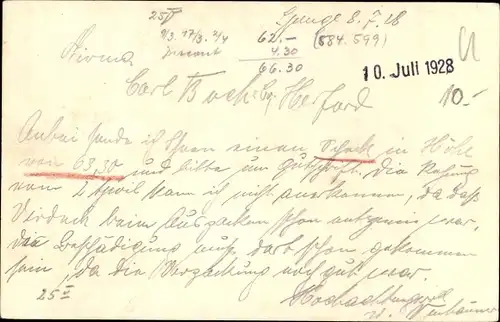 25 II
Spenge 8.7.28
7/3. 17/3. 2/4
62.- (584.599)
4.30
66.30
10. Juli 1928
10.-
Firma
Carl Bock Herford
Anbei sende ich Ihnen einen Scheck in Höhe
von 63,30 und bitte um Gutschrift. Die Rechnung
vom 2. April kann ich nicht anerkennen, da das
Verdeck beim Auspacken schon entzwei war,
Die Beschädigung muß dort schon gekommen
sein, da die Verpackung noch gut war.
Hochachtungsvoll
25 II